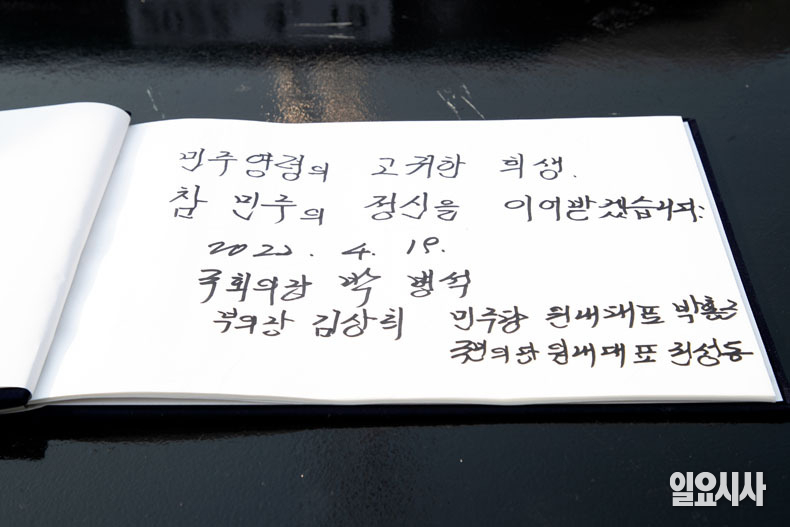 민주영령의 고귀한 희생.
참 민주의 정신을 이어받겠습니다.
2022. 4. 19.
국회의장 박병석
부의장 김상희 민주당 원내대표 박홍근
국민의당 원내대표 권성동
일요시사